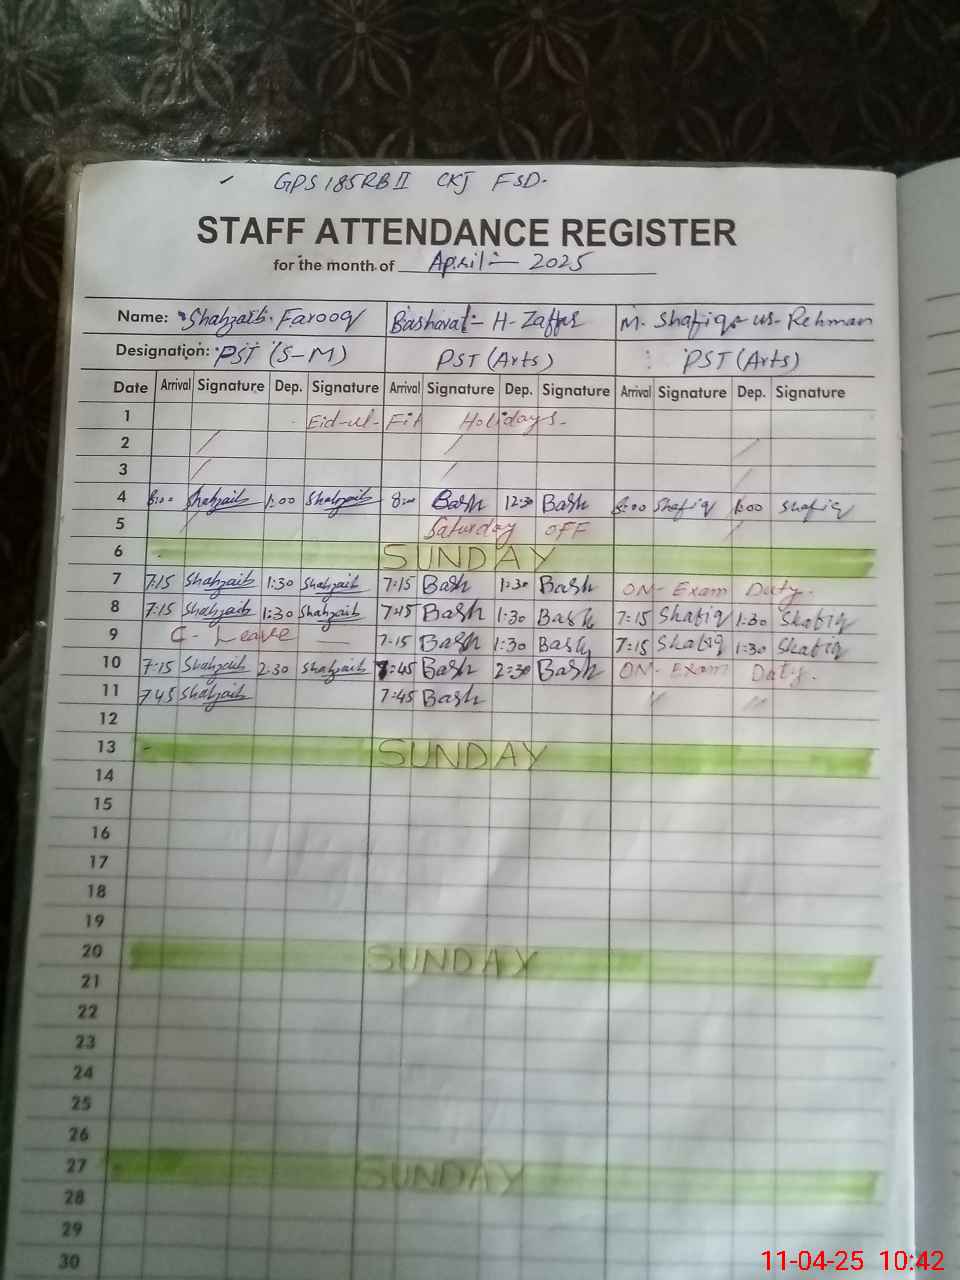 GPS 185RB II CKJ FSD.
STAFF ATTENDANCE REGISTER
for the month of April - 2025
Name: Shahzaib. Farooq Basharat - H - Zaffar M. Shafiq-us-Rehman
Designation: PST (S-M) PST (Arts) PST (Arts)
Date Arrival Signature Dep. Signature Arrival Signature Dep. Signature Arrival Signature Dep. Signature
1 Eid-ul-Fit Holidays.
2
3
4 8:00 Shahzaib 1:00 Shahzaib 8:00 Bash 12:30 Bash 8:00 Shafiq 1:00 Shafiq
5 Saturday OFF
6 SUNDAY
7 7:15 Shahzaib 1:30 Shahzaib 7:15 Bash 1:30 Bash ON- Exam Duty.
8 7:15 Shahzaib 1:30 Shahzaib 7:15 Bash 1:30 Bash 7:15 Shafiq 1:30 Shafiq
9 C- Leave 7:15 Bash 1:30 Bash 7:15 Shafiq 1:30 Shafiq
10 7:15 Shahzaib 2:30 Shahzaib 7:45 Bash 2:30 Bash ON- Exam Duty.
11 7:45 Shahzaib 7:45 Bash " "
12
13 SUNDAY
14
15
16
17
18
19
20 SUNDAY
21
22
23
24
25
26
27 SUNDAY
28
29
30
11-04-25 10:42